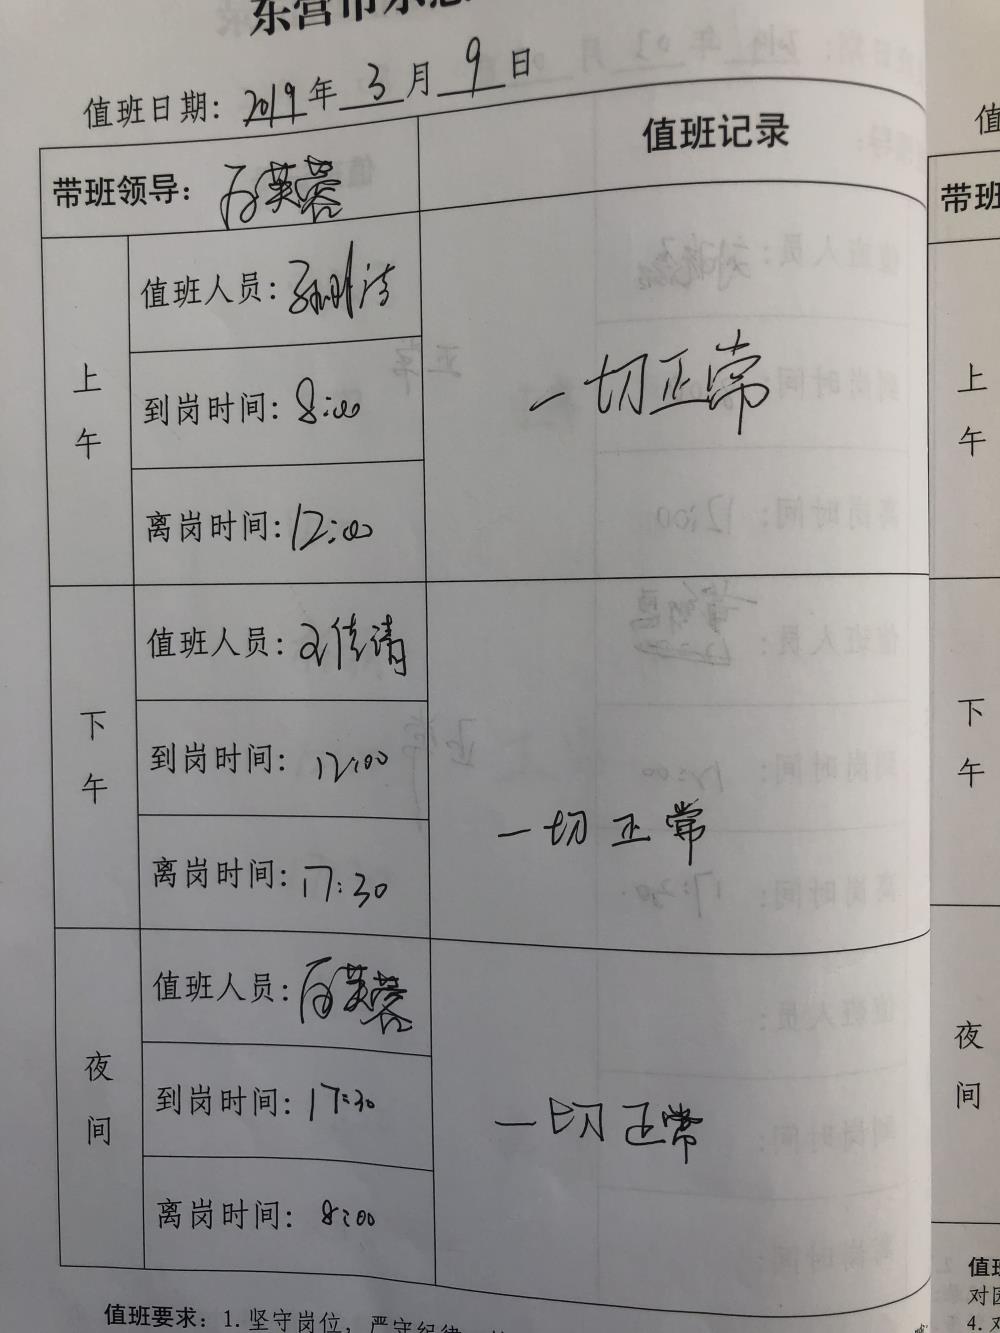 值班日期：2019年3月9日
带班领导：
值班记录
上午
值班人员：
到岗时间：8:00
离岗时间：12:00
一切正常
下午
值班人员：王佳清
到岗时间：12:00
离岗时间：17:30
一切正常
夜间
值班人员：
到岗时间：17:30
离岗时间：8:00
一切正常
值班要求：1. 坚守岗位，严守纪律
带班
上午
下午
夜间
值班
4.